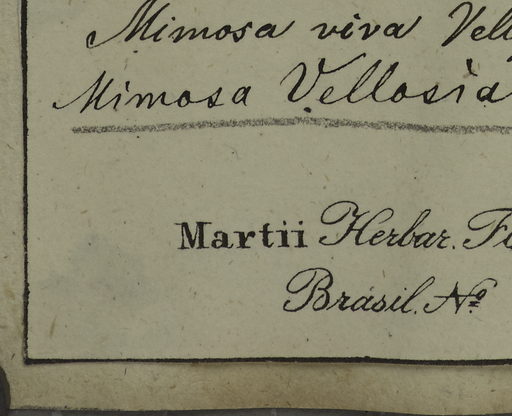 Mimosa viva Vell
Mimosa Vellosia
Martii Herbar. Fl
Brasil. Nº